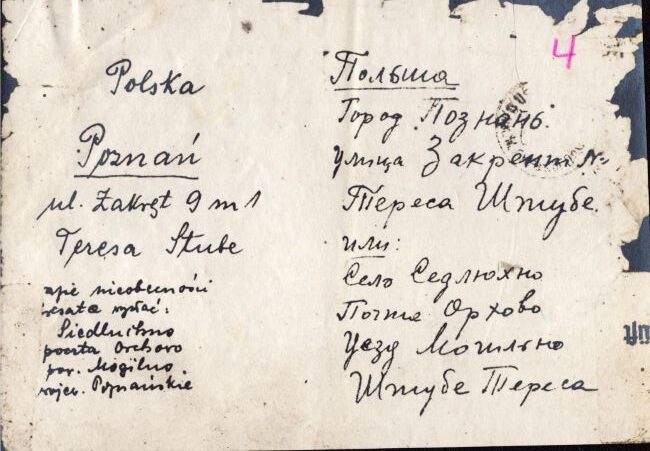 Polska
Poznań
ul. Zakręt 9 m 1
Teresa Stube
nieobecności
Siedluchno
poczta Orchowo
pow. Mogilno
wojew. Poznańskie
4
Польша
Город Познань.
улица Закрент №
Тереса Штубе.
или:
Село Седлюхно
Почта Орхово
Уезд Могильно
Штубе Тереса